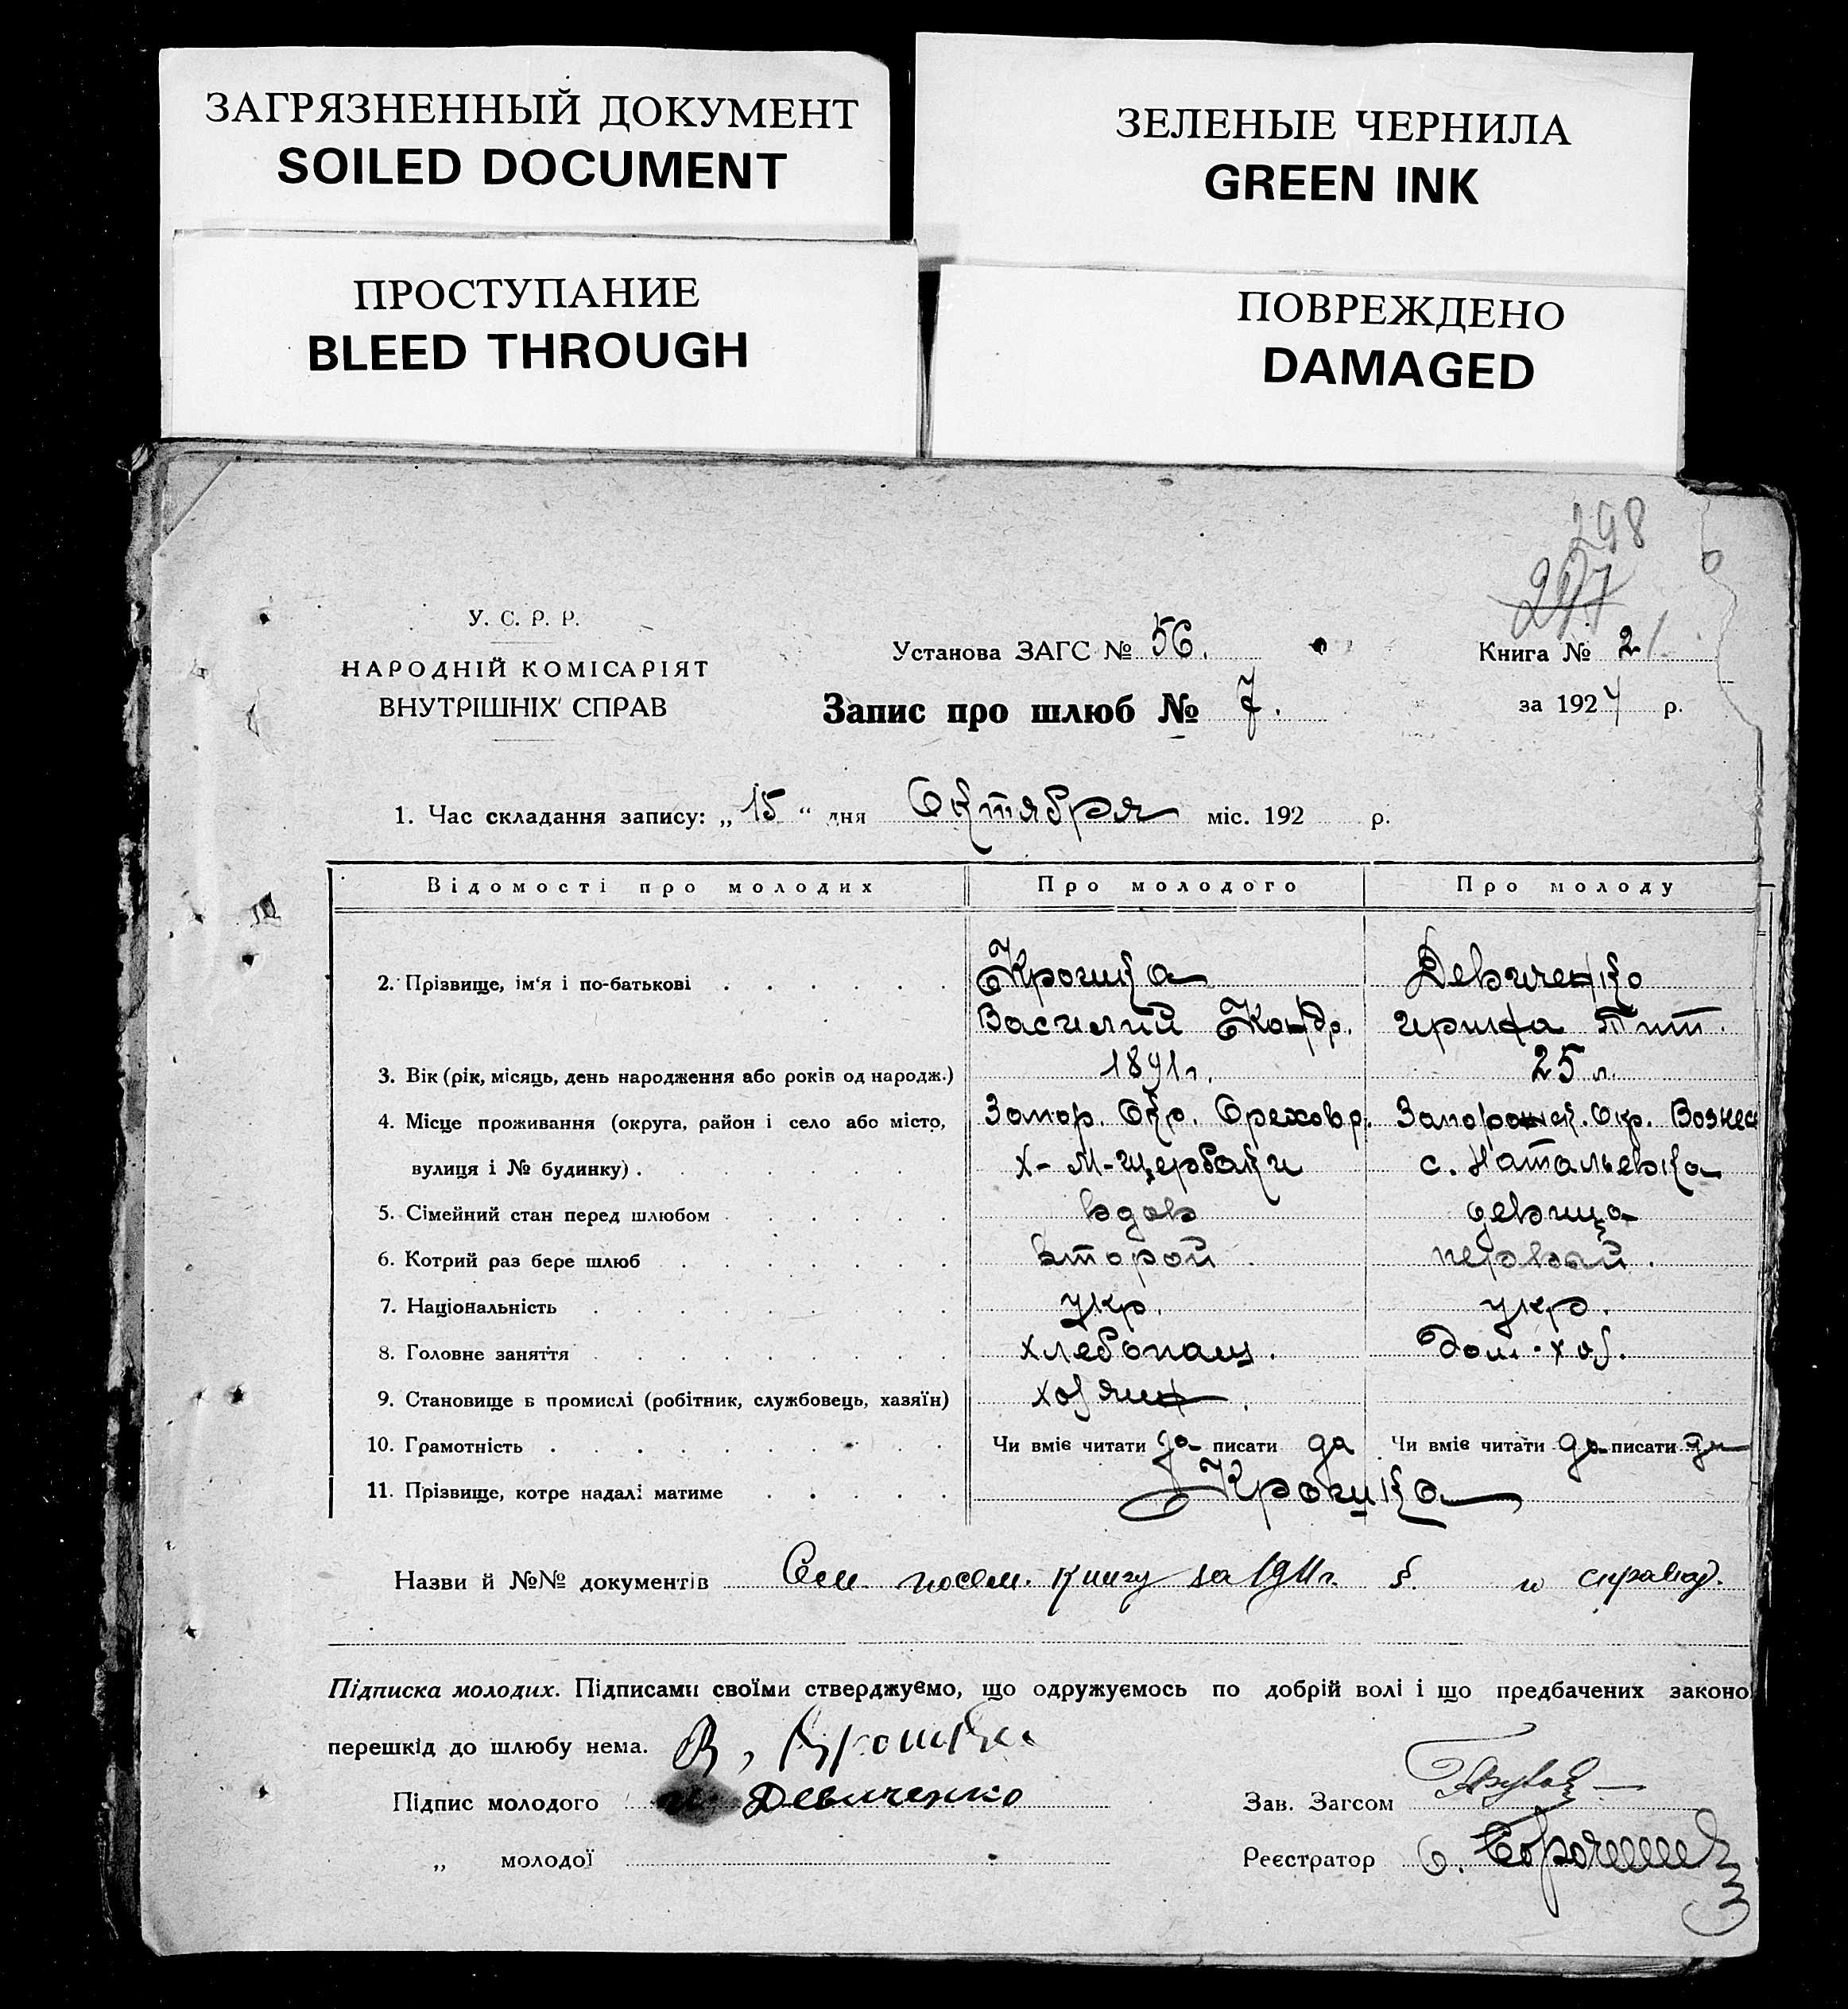 ЗАГРЯЗНЕННЫЙ ДОКУМЕНТ
SOILED DOCUMENT
ЗЕЛЕНЫЕ ЧЕРНИЛА
GREEN INK
ПРОСТУПАНИЕ
BLEED THROUGH
ПОВРЕЖДЕНО
DAMAGED
298
297
У. С. Р. Р.
НАРОДНІЙ КОМІСАРІЯТ
ВНУТРІШНІХ СПРАВ
Установа ЗАГС № 56.
Книга № 2
Запис про шлюб № 7.
за 1924 р.
1. Час складання запису: „15“ дня Октября міс. 192 р.
Відомості про молодих Про молодого Про молоду
2. Прізвище, ім‘я і по-батькові Крошка Девиченко
Василий Кондр. Ирина Тит.
3. Вік (рік, місяць, день народження або років од народж.) 1891 г. 25 л.
4. Місце проживання (округа, район і село або місто, Запор. Окр. Орехов р. Запорожск. Окр. Вознес
вулиця і № будинку) х- М-Щербаки с. Натальевка
5. Сімейний стан перед шлюбом вдов девица
6. Котрий раз бере шлюб второй первый.
7. Національність укр. укр.
8. Головне заняття хлебопаш. Дом. хоз.
9. Становище в промислі (робітник, службовець, хазяїн) хозяин
10. Грамотність Чи вміє читати да писати да Чи вміє читати да писати да
11. Прізвище, котре надалі матиме Крошка
Назви й №№ документів посем. книгу за 1911 г. и справок.
Підписка молодих. Підписами своїми стверджуємо, що одружуємось по добрій волі і що предбачених законо
перешкід до шлюбу нема. В. Крошка
Підпис молодого Девиченко
Зав. Загсом
„ молодої
Реєстратор